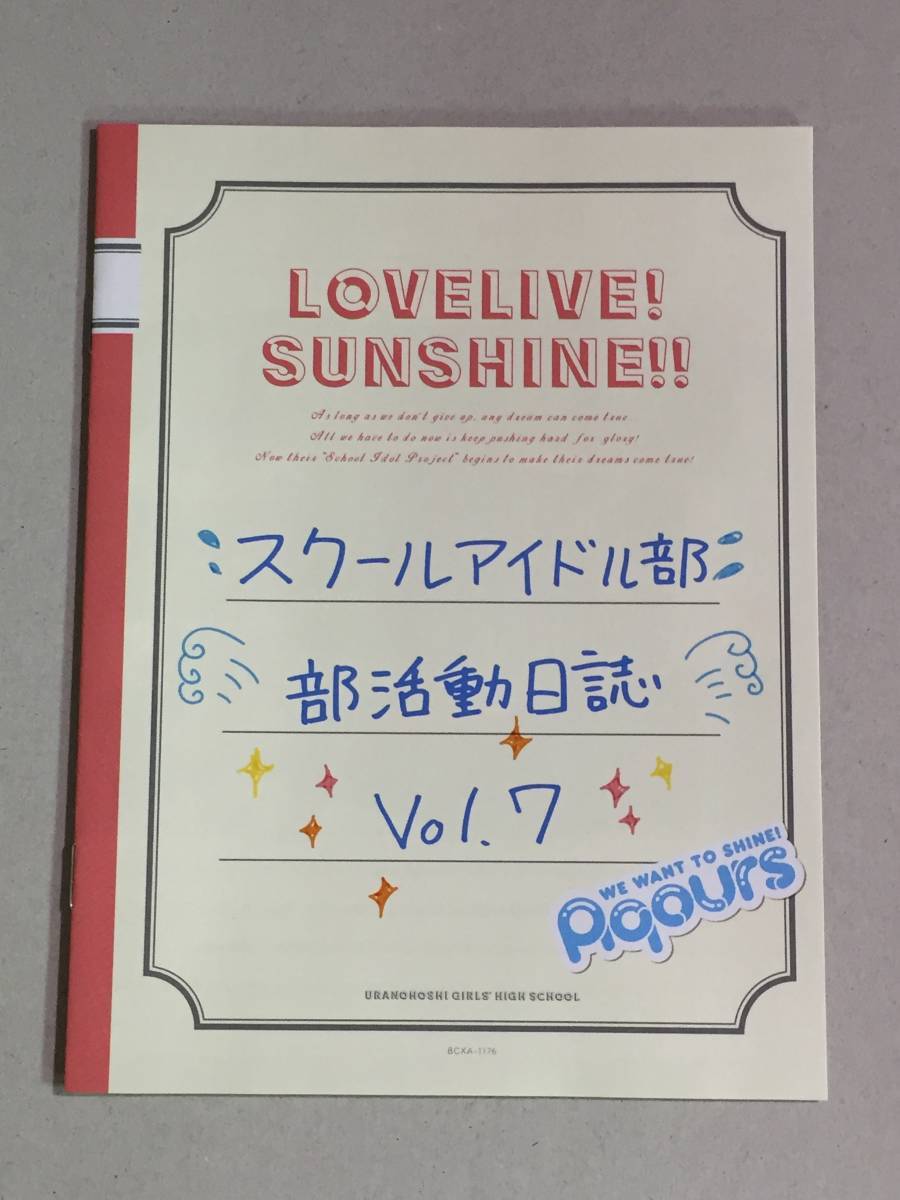 LOVELIVE!
SUNSHINE!!
As long as we don't give up, any dream can come true.
All we have to do now is keep pushing hard for glory!
Now there "School Idol Project" begins to make their dreams come true!
スクールアイドル部
部活動日誌
Vol.7
WE WANT TO SHINE!
Aqours
URANOHOSHI GIRLS' HIGH SCHOOL
BCXA-1176